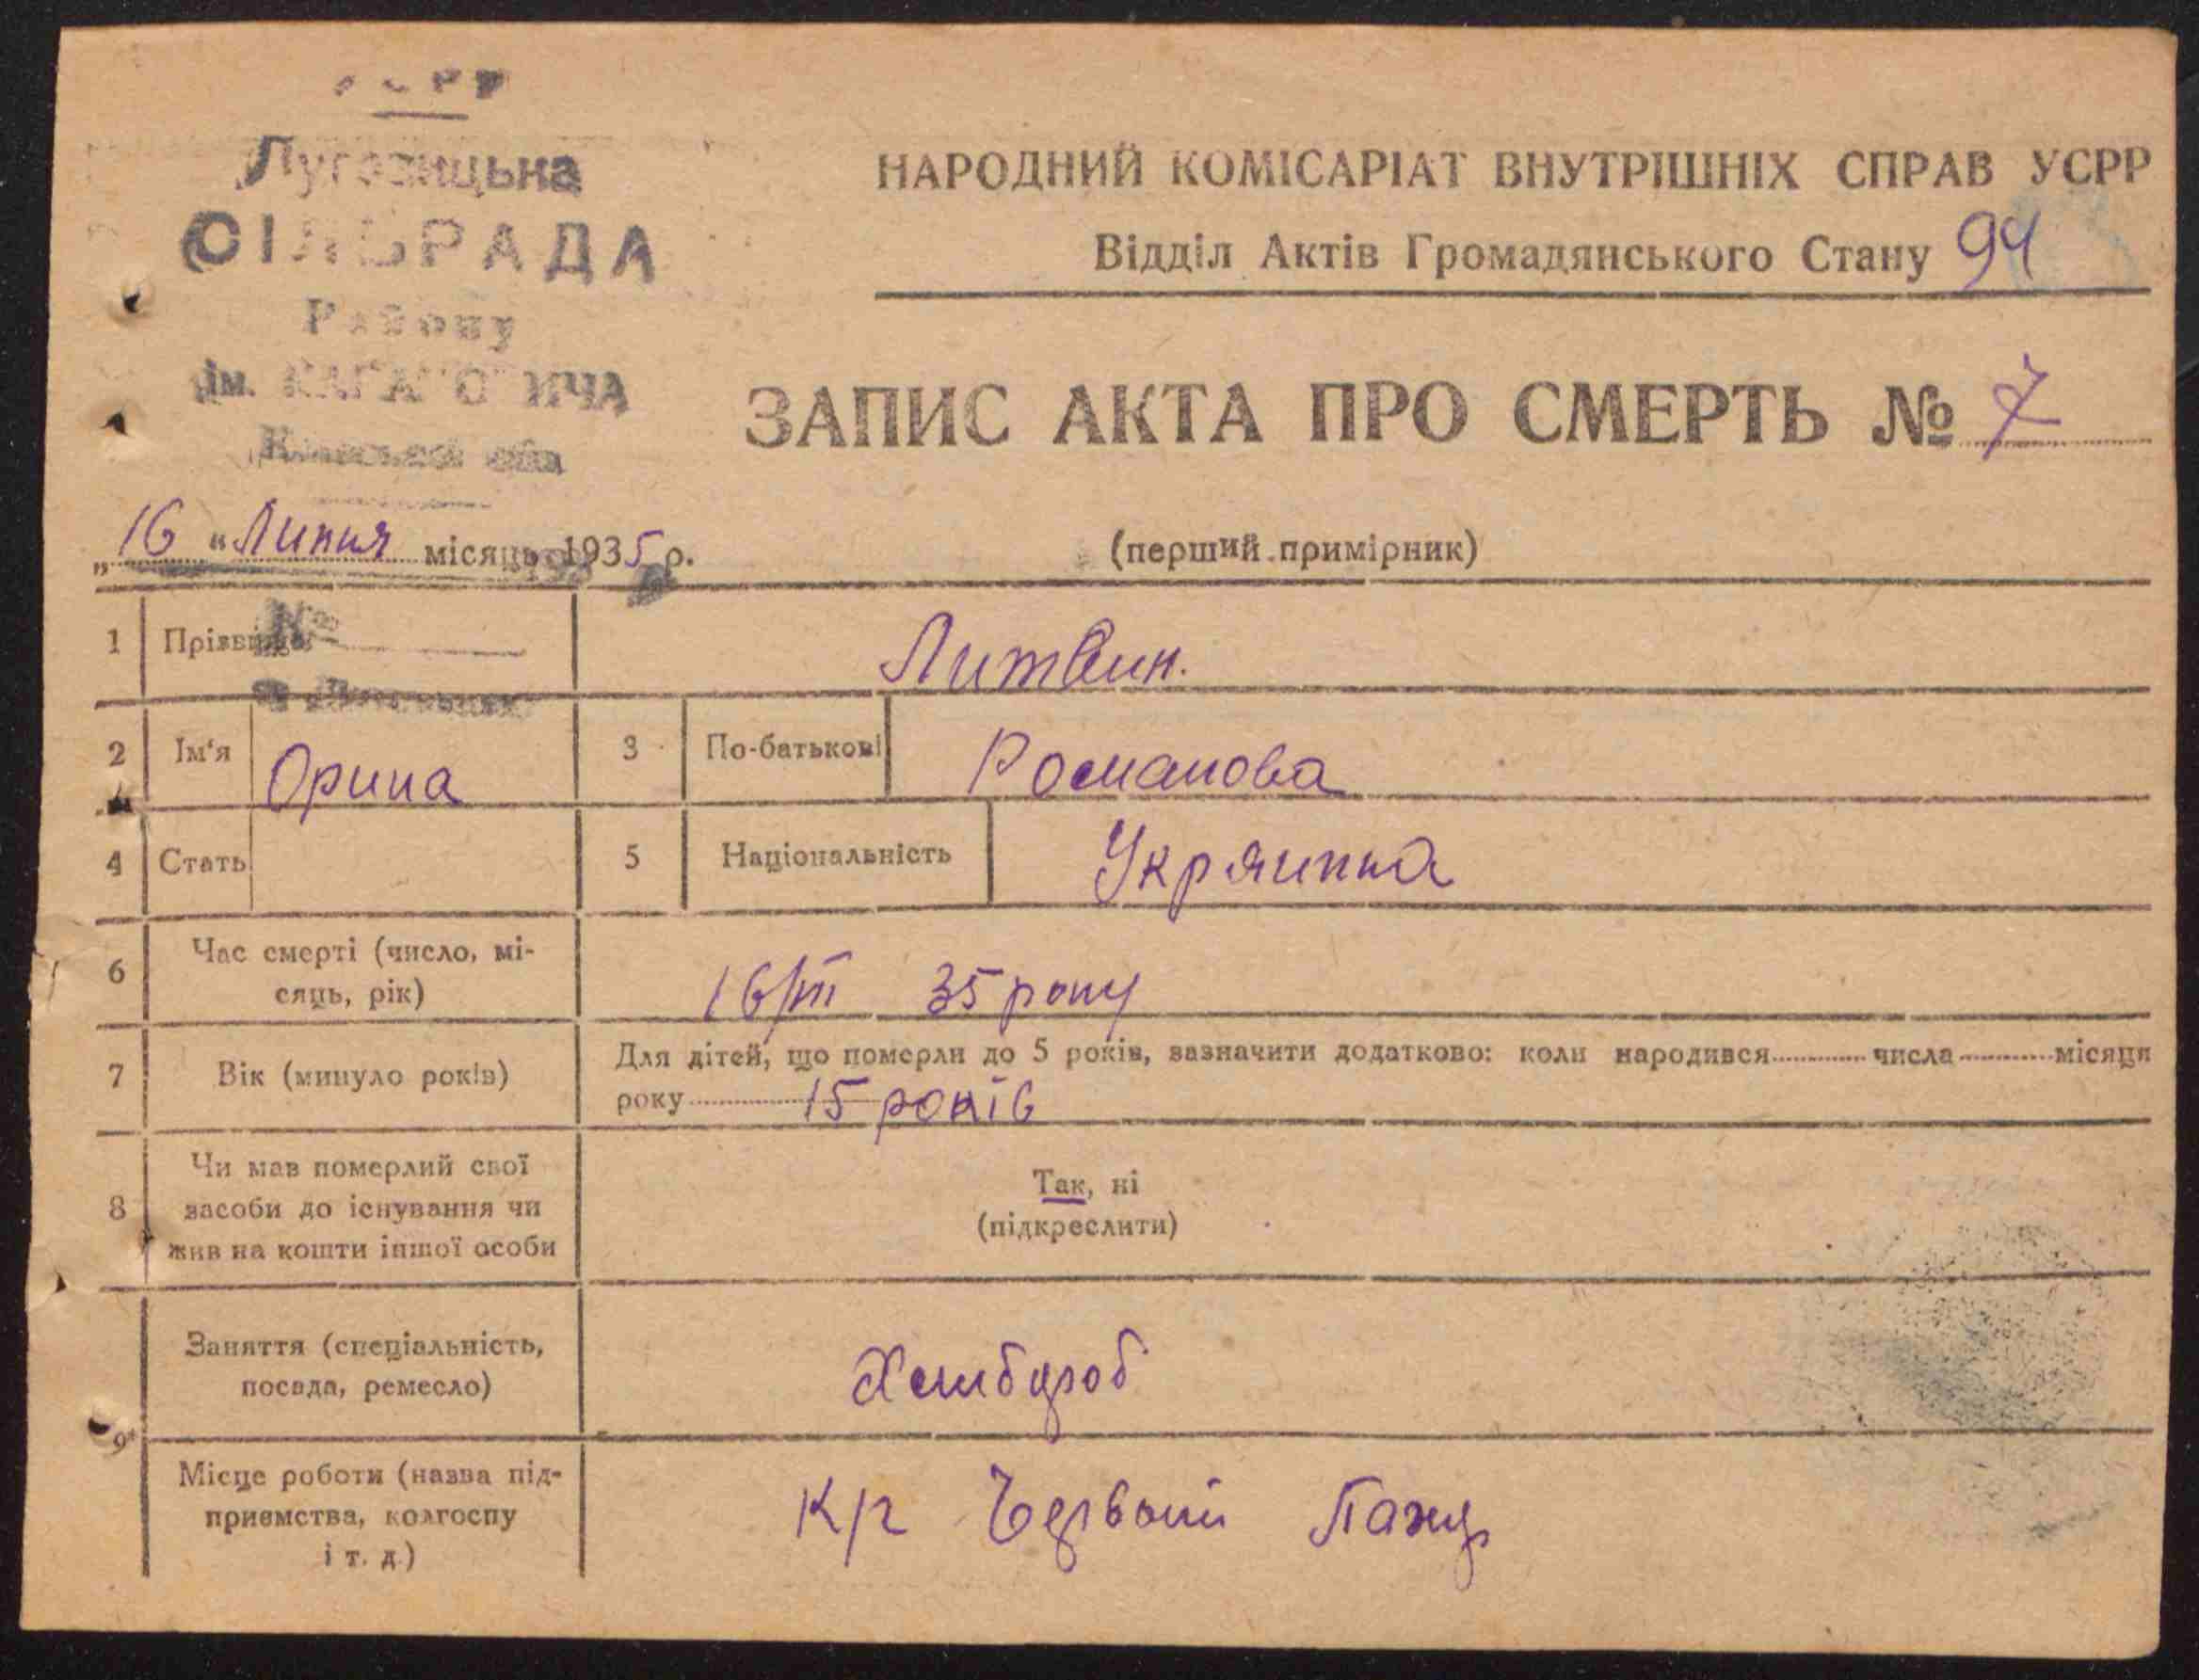 УСРР
СІЛЬРАДА
Району
ім. КАГАНОВИЧА
Київської обл
НАРОДНИЙ КОМІСАРІАТ ВНУТРІШНІХ СПРАВ УСРР
Відділ Актів Громадянського Стану 94
ЗАПИС АКТА ПРО СМЕРТЬ № 7
„16 “ Липня місяць 1935 р.
(перший примірник)
№
1 Прізвище Литвин.
2 Ім'я Орина 3 По-батькові Романова
4 Стать 5 Національність Укряинка
6 Час смерті (число, мі-
сяць, рік) 16/VII 35 року
7 Вік (минуло років) Для дітей, що померли до 5 років, зазначити додатково: коли народився числа місяця
року 15 років
8 Чи мав померлий свої
засоби до існування чи
жив на кошти іншої особи
Так, ні
(підкреслити)
9 Заняття (спеціальність,
посада, ремесло) Хлибороб
Місце роботи (назва під-
приємства, колгоспу
і т. д.)
К/г Червоний